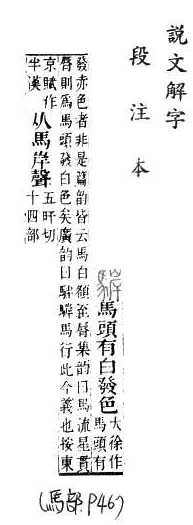 說文解字
段注本
䮗馬頭有白發色
大徐作
馬頭有
發赤色者非是篇韵皆云馬白頟至脣集韵曰馬流星貫
脣則爲馬頭發白色矣廣韵曰䭴䮗馬行此今義也按東
京賦作
半漢
从馬岸聲
五旰切
十四部
(馬部 P46)